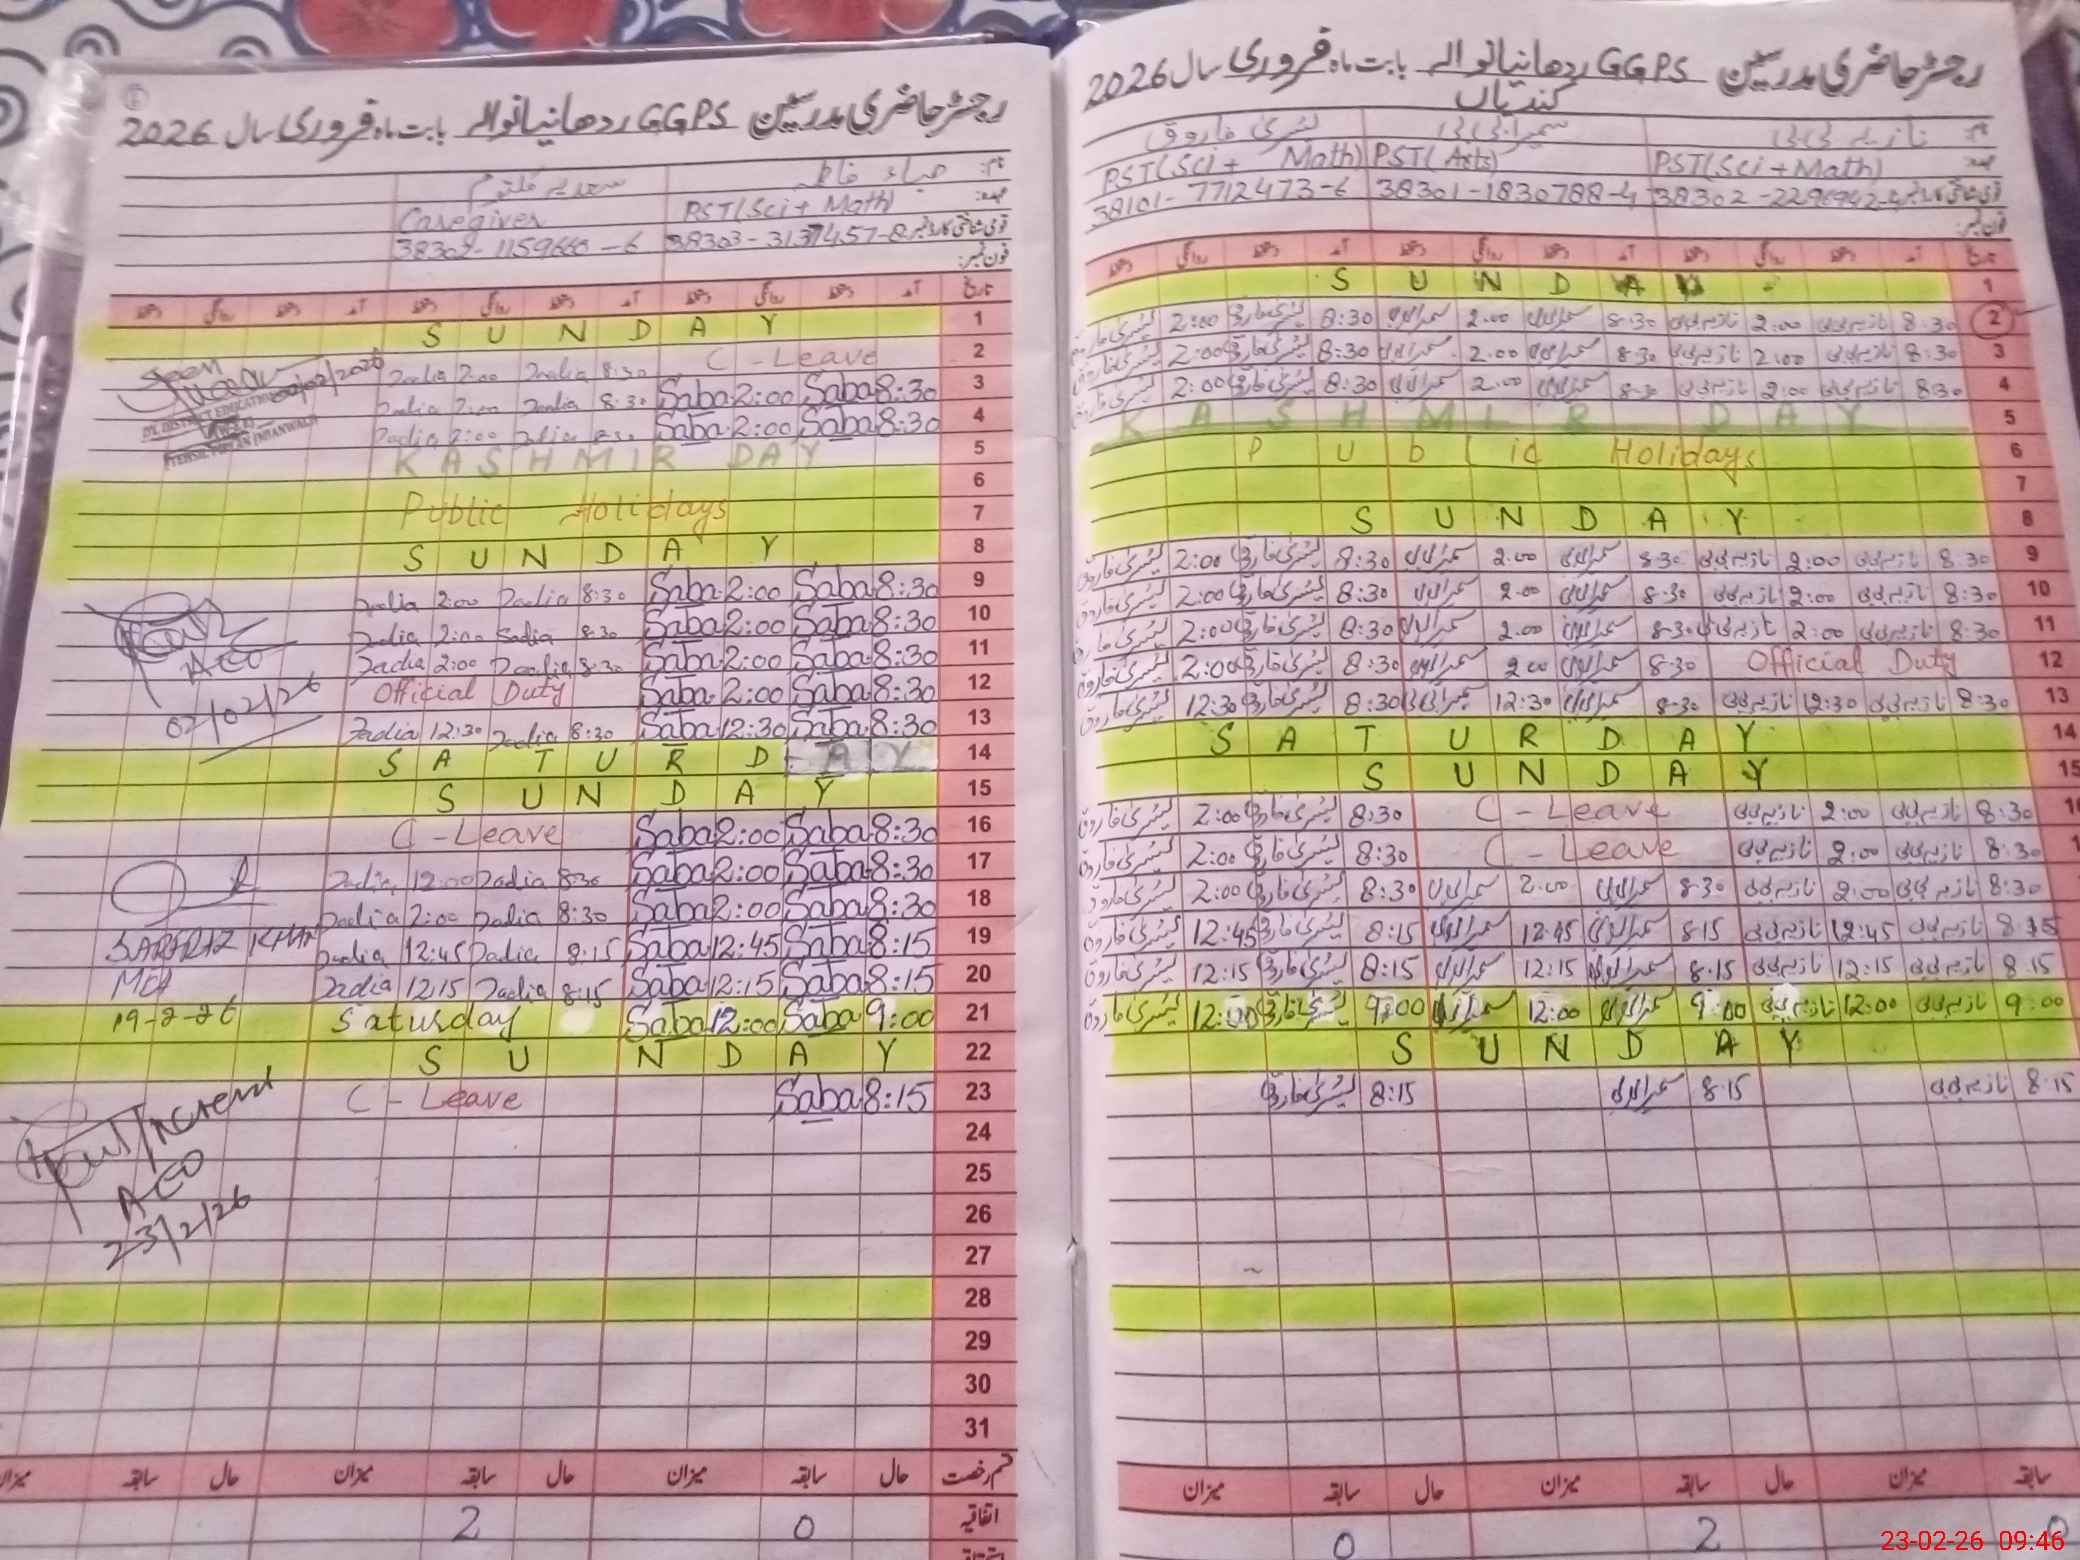 رجسٹر حاضری مدرسین GGPS ردھانیانوالہ بابت ماہ فروری سال 2026
نام: صباء فاطمہ سعدیہ کلثوم
عہدہ: PST(Sci + Math) Caregiver
قومی شناختی کارڈ نمبر
فون نمبر:
تاریخ آمد دستخط روانگی دستخط آمد دستخط روانگی دستخط آمد دستخط روانگی دستخط
1 SUNDAY
2 C - Leave 8:30 Sadia 2:00 Sadia
3 8:30 Saba 2:00 Saba 8:30 Sadia 2:00 Sadia
4 8:30 Saba 2:00 Saba 8:30 Sadia 2:00 Sadia
02/02/2026
5 KASHMIR DAY
6
7 Public Holidays
8 SUNDAY
9 8:30 Saba 2:00 Saba 8:30 Sadia 2:00 Sadia
10 8:30 Saba 2:00 Saba 8:30 Sadia 2:00 Sadia
11 8:30 Saba 2:00 Saba 8:30 Sadia 2:00 Sadia
12 8:30 Saba 2:00 Saba Official Duty
13 8:30 Saba 12:30 Saba 8:30 Sadia 12:30 Sadia
AEO
02/02/26
14 SATURDAY
15 SUNDAY
16 8:30 Saba 2:00 Saba C - Leave
17 8:30 Saba 2:00 Saba 8:30 Sadia 12:00 Sadia
18 8:30 Saba 2:00 Saba 8:30 Sadia 2:00 Sadia
19 8:15 Saba 12:45 Saba 8:15 Sadia 12:45 Sadia
20 8:15 Saba 12:15 Saba 8:15 Sadia 12:15 Sadia
21 9:00 Saba 12:00 Saba Saturday
SARFRAZ KHAN
MEA
19-2-26
22 SUNDAY
23 8:15 Saba C - Leave
AEO
23/2/26
24
25
26
27
28
29
30
31
قسم رخصت حال سابقہ میزان حال سابقہ میزان حال سابقہ میزان
اتفاقیہ 0 2
رجسٹر حاضری مدرسین GGPS ردھانیانوالہ بابت ماہ فروری سال 2026
کندیاں
نام: نازیہ بی بی سمیرا بی بی بشریٰ فاروق
عہدہ: PST(Sci+Math) PST(Arts) PST(Sci + Math)
قومی شناختی کارڈ نمبر 38301-1830788-4 38101-7712473-6
فون نمبر:
تاریخ آمد دستخط روانگی دستخط آمد دستخط روانگی دستخط آمد دستخط روانگی دستخط
1 SUNDAY
2 8:30 نازیہ بی بی 2:00 نازیہ بی بی 8:30 2:00 8:30 بشریٰ فاروق 2:00 بشریٰ فاروق
3 8:30 نازیہ بی بی 2:00 نازیہ بی بی 8:30 2:00 8:30 بشریٰ فاروق 2:00 بشریٰ فاروق
4 8:30 نازیہ بی بی 2:00 نازیہ بی بی 8:30 2:00 8:30 بشریٰ فاروق 2:00 بشریٰ فاروق
5 KASHMIR DAY
6 Public Holidays
7
8 SUNDAY
9 8:30 نازیہ بی بی 2:00 نازیہ بی بی 8:30 2:00 8:30 بشریٰ فاروق 2:00 بشریٰ فاروق
10 8:30 نازیہ بی بی 2:00 نازیہ بی بی 8:30 2:00 8:30 بشریٰ فاروق 2:00 بشریٰ فاروق
11 8:30 نازیہ بی بی 2:00 نازیہ بی بی 8:30 2:00 8:30 بشریٰ فاروق 2:00 بشریٰ فاروق
12 Official Duty 8:30 2:00 8:30 بشریٰ فاروق 2:00 بشریٰ فاروق
13 8:30 نازیہ بی بی 12:30 نازیہ بی بی 8:30 12:30 8:30 بشریٰ فاروق 12:30 بشریٰ فاروق
14 SATURDAY
15 SUNDAY
8:30 نازیہ بی بی 2:00 نازیہ بی بی C - Leave 8:30 بشریٰ فاروق 2:00 بشریٰ فاروق
8:30 نازیہ بی بی 2:00 نازیہ بی بی C - Leave 8:30 بشریٰ فاروق 2:00 بشریٰ فاروق
8:30 نازیہ بی بی 2:00 نازیہ بی بی 8:30 2:00 8:30 بشریٰ فاروق 2:00 بشریٰ فاروق
8:15 نازیہ بی بی 12:45 نازیہ بی بی 8:15 12:45 8:15 بشریٰ فاروق 12:45 بشریٰ فاروق
8:15 نازیہ بی بی 12:15 نازیہ بی بی 8:15 12:15 8:15 بشریٰ فاروق 12:15 بشریٰ فاروق
9:00 نازیہ بی بی 12:00 نازیہ بی بی 9:00 12:00 9:00 بشریٰ فاروق 12:00 بشریٰ فاروق
SUNDAY
8:15 نازیہ بی بی 8:15 8:15 بشریٰ فاروق
سابقہ میزان حال سابقہ میزان حال سابقہ میزان
0 2 0
23-02-26 09:46